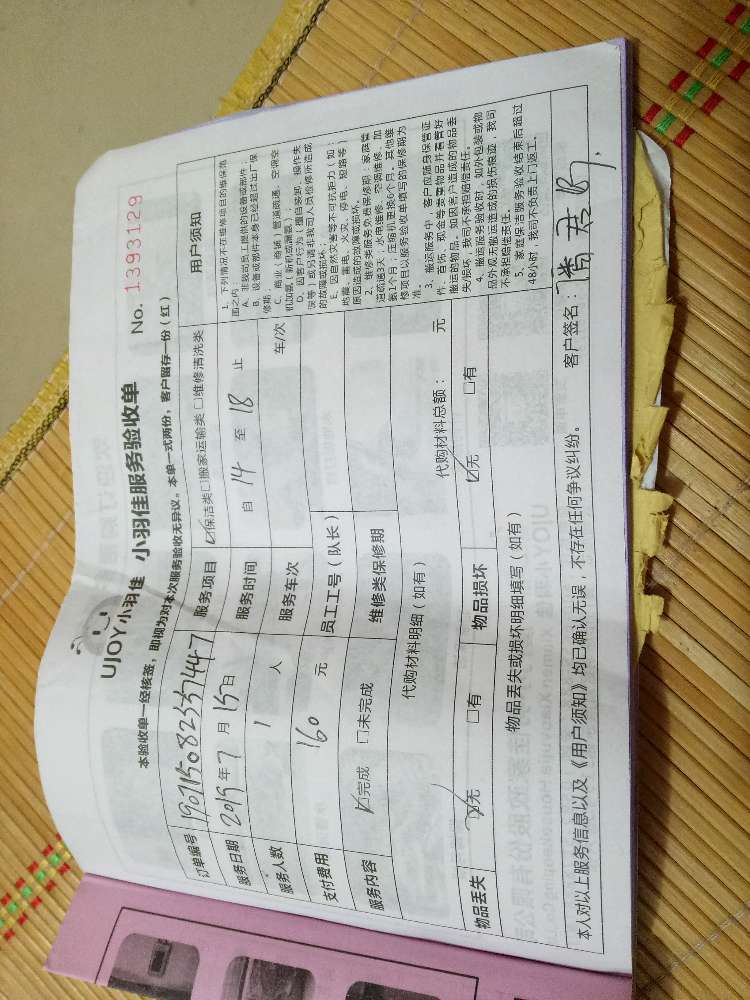 UJOY小羽佳 小羽佳服务验收单 No. 1393129
本验收单一经核签，即视为对本次服务验收无异议。本单一式两份，客户留存一份（红）
订单编号 服务项目 ☑保洁类□搬家运输类□维修清洗类 用户须知
服务日期 2019年7月15日 服务时间 自 14 至 18 止
服务人数 1 人 服务车次 车/次
支付费用 160 元 员工工号（队长）
服务内容 ☑完成 □未完成 维修类保修期
代购材料明细（如有） 代购材料总额： 元
物品丢失 ☑无 □有 物品损坏 ☑无 □有
物品丢失或损坏明细填写（如有）
1、下列情况不在维修项目的维保范
围之内：
A、非我司员工提供的设备或部件
B、设备或部件本身已经超过出厂保
修期；
C、商业（商铺）管道疏通、空调空
机加氨（新机或漏氨）；
D、因客户行为（擅自装卸、操作失
误等）或另请非我司人员检修所造成
的故障或损坏；
E、因自然灾害等不可抗距力（如：
地震、雷电、火灾、停电、短路等）
原因造成的故障或损坏。
2、维修类服务免费保修期：家庭管
道疏通3天，水电维修、空调维修、加
氨1个月，压缩机更换6个月，其他维
修项目以服务验收单填写的保修期为
准。
3、搬运服务中，客户应随身保管证
件、首饰、现金等贵重物品并看管好
搬运的物品，如因客户造成的物品丢
失损坏，我司不承担赔偿责任。
4、搬运服务验收时，如外包装或物
品外观无搬运造成的损伤痕迹，我司
不承担赔偿责任。
5、家庭保洁服务验收结束后超过
48小时，我司不负责上门返工。
本人对以上服务信息以及《用户须知》均已确认无误，不存在任何争议纠纷。 客户签名：